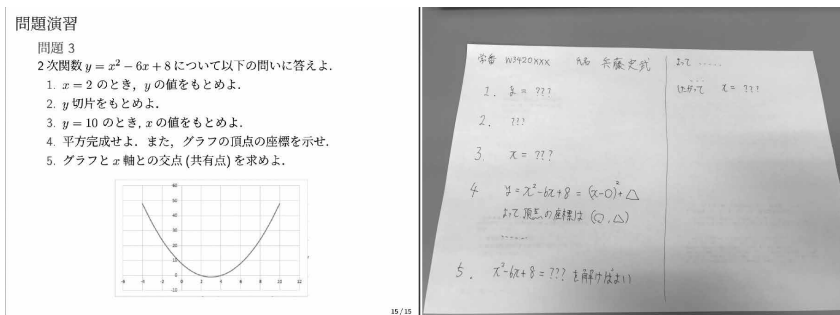 問題演習
問題 3
2 次関数 y = x² − 6x + 8 について以下の問いに答えよ.
1. x = 2 のとき, y の値をもとめよ.
2. y 切片をもとめよ.
3. y = 10 のとき, x の値をもとめよ.
4. 平方完成せよ. また, グラフの頂点の座標を示せ.
5. グラフと x 軸との交点 (共有点) を求めよ.
60
50
40
30
20
10
0
-10
-6 -4 -2 0 2 4 6 8 10 12
15 / 15
学番 W3420XXX 氏名 兵藤史武
1. y = ???
2. ???
3. x = ???
4 y = x²-6x+8 = (x-○)²+△
よって頂点の座標は (○, △)
......
5. x²-6x+8 = ??? を解けばよい
よって ......
したがって x = ???